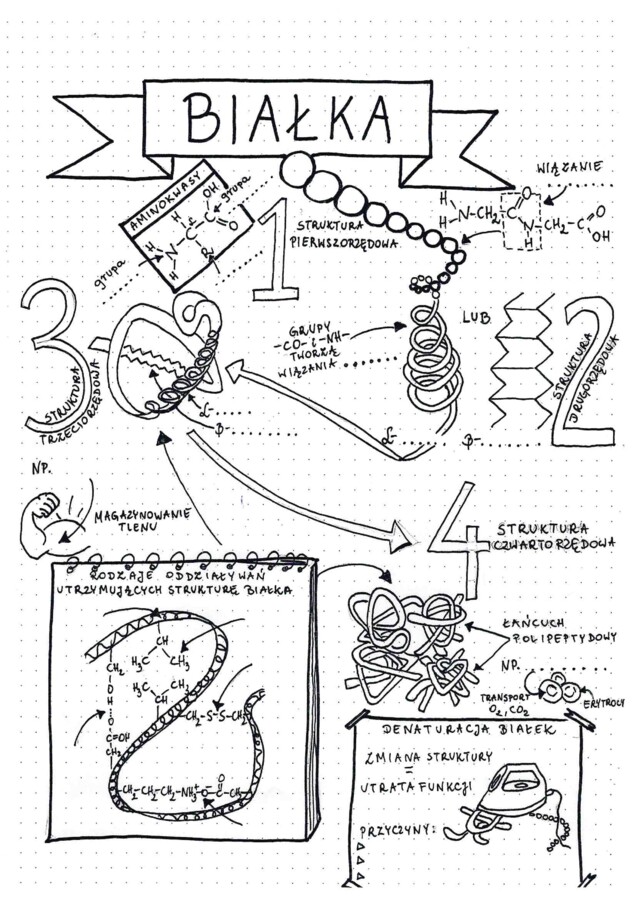 BIAŁKA
AMINOKWASY
grupa
OH
H
C
O
H
N
H
R
grupa
1
STRUKTURA
PIERWSZORZĘDOWA
WIĄZANIE
H
H-N-CH₂-C
O
N-CH₂-C
H
O
OH
3
STRUKTURA
TRZECIORZĘDOWA
GRUPY
-CO- i -NH-
TWORZĄ
WIĄZANIA
LUB
2
STRUKTURA
DRUGORZĘDOWA
L-
B-
L-
B-
NP.
MAGAZYNOWANIE
TLENU
4
STRUKTURA
CZWARTORZĘDOWA
RODZAJE ODDZIAŁYWAŃ
UTRZYMUJĄCYCH STRUKTURĘ BIAŁKA
CH
H₃C CH₃
CH₂
O
H
O
C=OH
CH₂
H₃C CH₃
CH
-CH₂-S-S-CH₂
-CH₂-CH₂-CH₂-NH₃⁺ ⁻O-C-CH₂-
O
ŁAŃCUCH
POLIPEPTYDOWY
NP.
TRANSPORT
O₂, CO₂
ERYTROCY
DENATURACJA BIAŁEK
ZMIANA STRUKTURY
=
UTRATA FUNKCJI
PRZYCZYNY: